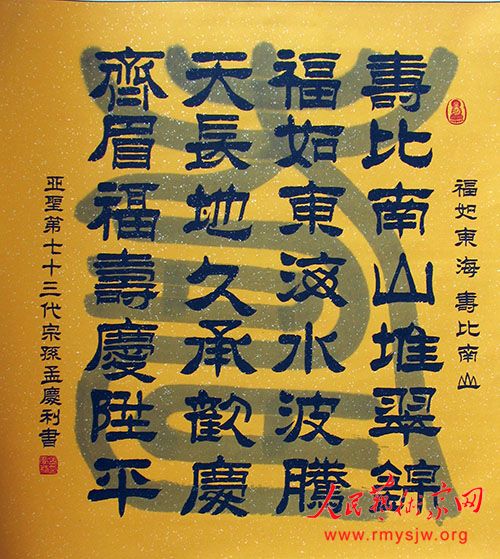 福如東海 壽比南山
壽比南山堆翠錦
福如東海水波騰
天長地久承歡慶
齊眉福壽慶陞平
亚聖第七十三代宗孫孟慶利書
人民藝術家网
www.rmysjw.org